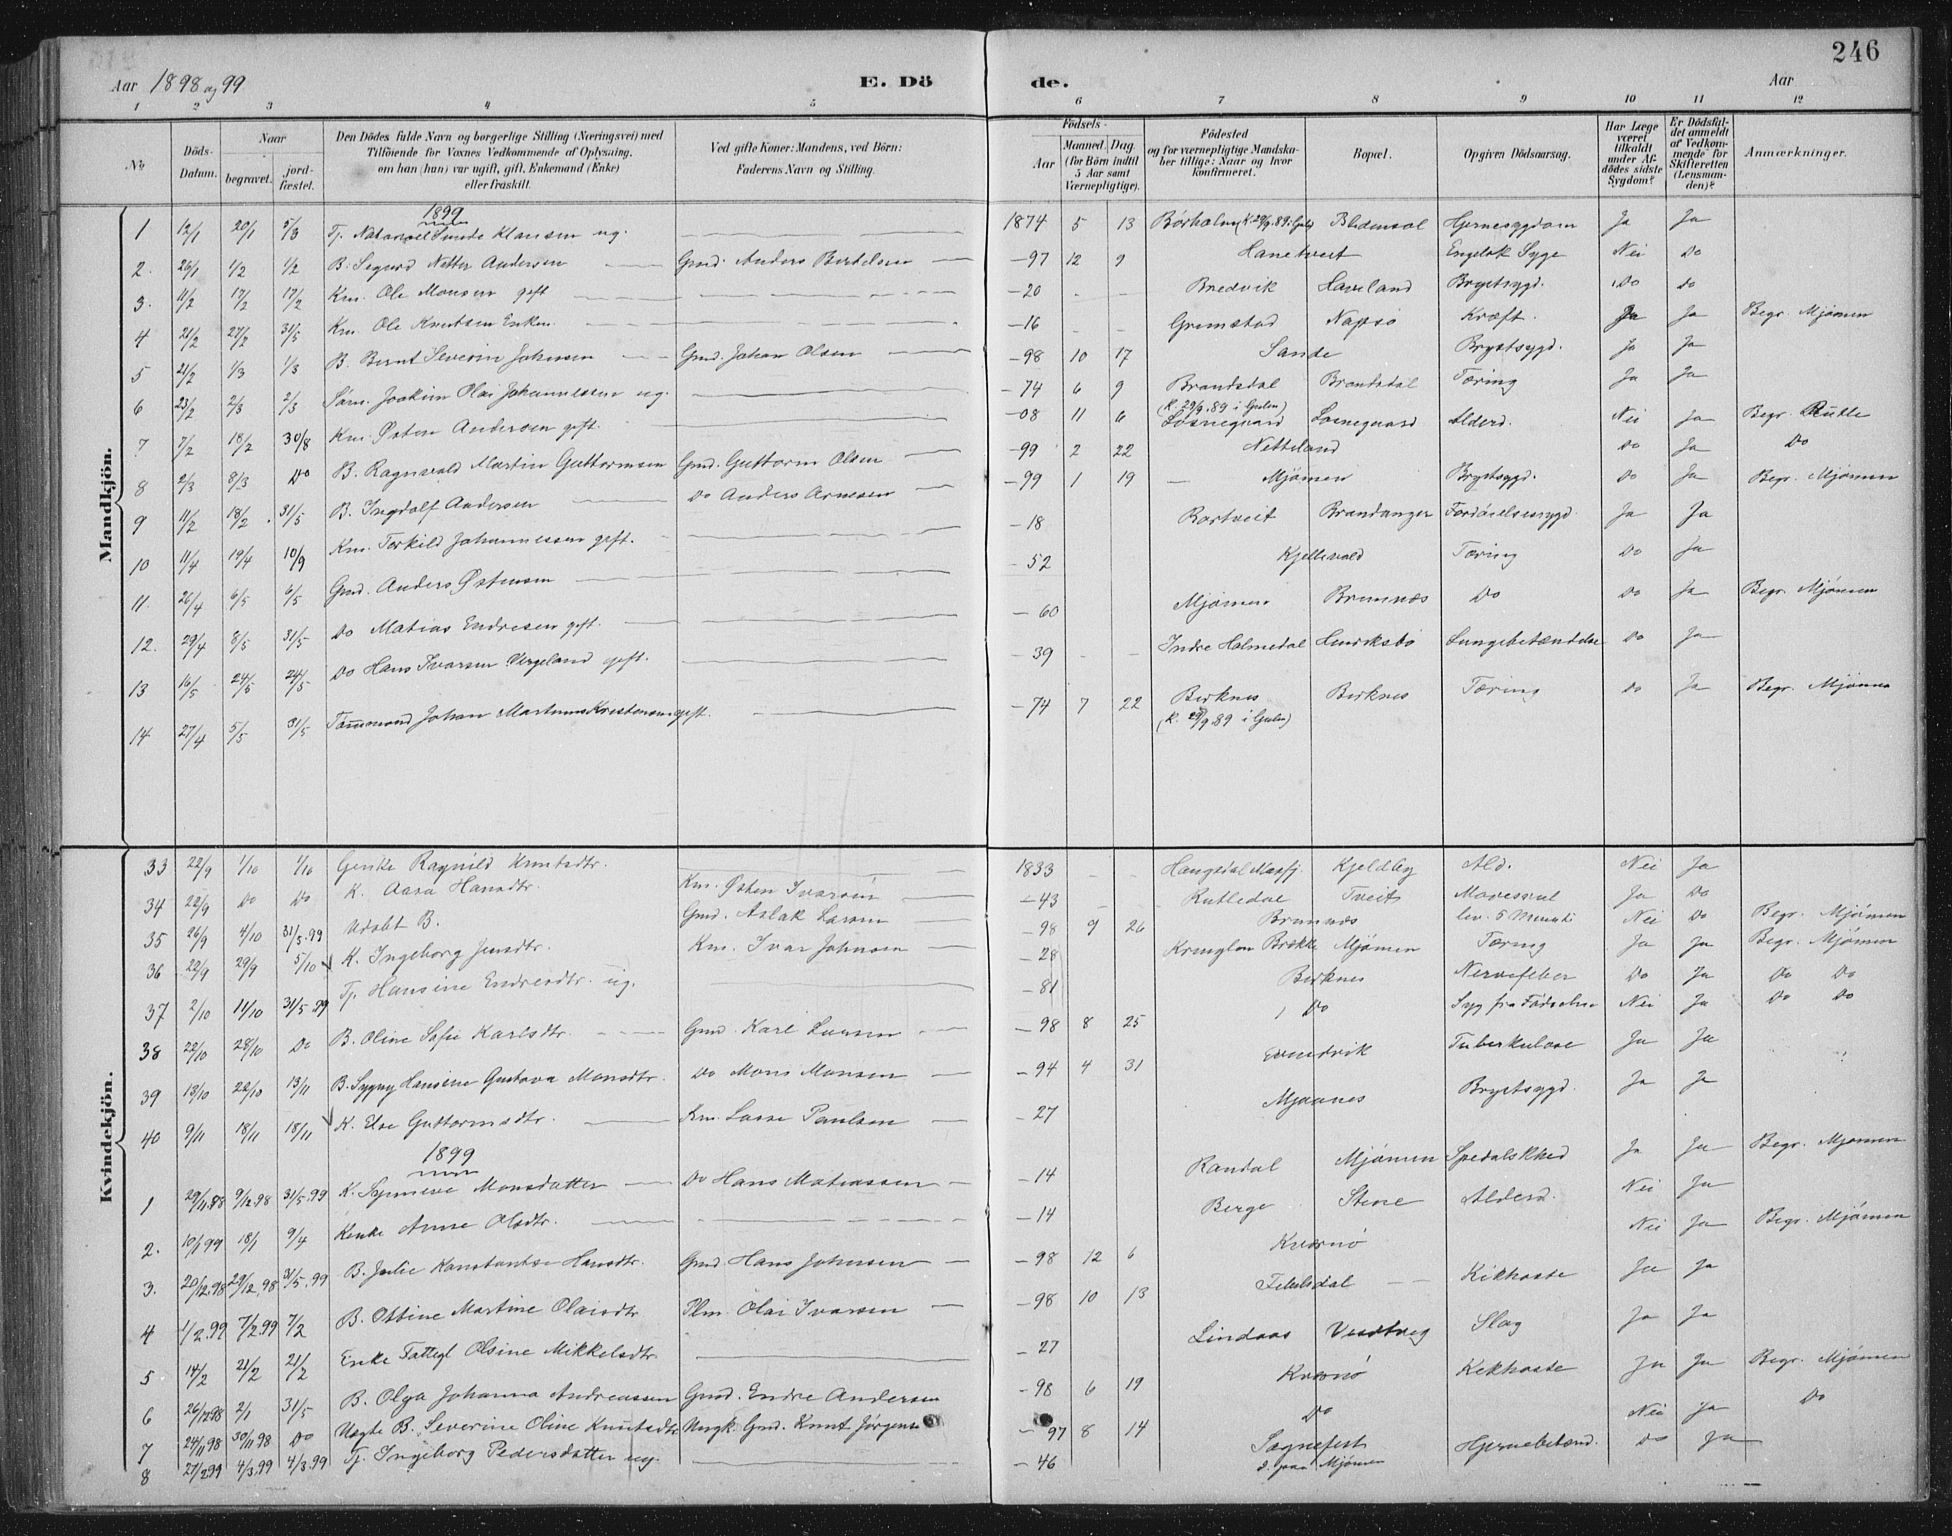 246
Aar 1898 og 99 E. Dö de. Aar
1 2 3 4 5 6 7 8 9 10 11 12
No Döds-Datum. Naar begravet. jord-fæstet. Den Dödes fulde Navn og borgerlige Stilling (Næringsvei) med Tilföiende for Voxnes Vedkommende af Oplysning, om han (hun) var ugift, gift, Enkemand (Enke) eller fraskilt. Ved gifte Koner: Mandens, ved Börn: Faderens Navn og Stilling. Födsels- Aar Maaned Dag (for Börn indtil 5 Aar samt Værnepligtige). Födested og for værnepligtige Mandskaber tillige: Naar og hvor konfirmeret. Bopæl. Opgiven Dödsaarsag. Har Læge været tilkaldt under Afdödes sidste Sygdom? Er Dödsfaldet anmeldt af Vedkommende for Skifteretten (Lensmanden)? Anmærkninger.
Mandkjön.
1899
1 12/1 20/1 5/3 Tj. Natanael Sunde Klausen ug. 1874 5 13 Børholm (K. 29/9 89 i Gulen) Hjernesygdom Ja Ja
2. 26/1 1/2 1/2 B. Sigurd Netter Andersen Gmd. Anders Bertelsen -97 12 9 Hanetveit Engelsk Syge Nei Do
3. 11/2 17/2 17/2 Km. Ole Monsen gift -20 Bredvik Haveland Brystsygd. Do Do
4 21/2 27/2 31/5 Km. Ole Knutsen Enkem. -16 Grimstad Napsø Kræft. Ja Ja Begr. Mjømen
5 21/2 1/3 1/3 B. Bernt Severin Johnsen Gmd. Johan Olsen -98 10 17 Sande Brystsygd. Ja Ja
6 23/2 2/3 2/3 Søm. Joakim Olai Johannessen ug. -74 6 9 Brandsdal Brandsdal Tæring Ja Ja
(K. 29/9 89 i Gulen)
7 7/2 18/2 30/8 Km. Østen Andersen gift. -08 11 6 Losnegaard Losnegaard Alderd. Nei Ja Begr. Rutle
8 2/3 8/3 Do B. Ragnvald Martin Guttormsen Gmd. Guttorm Olsen -99 2 22 Netteland Do Ja Do
9 11/2 18/2 31/5 B. Ingdolf Andersen Do Anders Arnesen -99 1 19 Mjømen Brystsygd. Do Ja Begr. Mjømen
10 11/4 19/4 10/9 Km. Torkild Johannessen gift. -18 Rortveit Brandanger Fordøielsessygd. Ja Ja
11. 26/4 6/5 6/5 Gmd. Anders Østensen -52 Kjellevold Tæring Do Ja
12. 29/4 8/5 31/5 Do Matias Endresen gift. -60 Mjømen Brunnæs Do Do Ja Begr. Mjømen
13 16/5 24/5 24/5 Do Hans Ivarsen Vergeland gift. -39 Indre Holmedal Henriksbø Lungebetændelse Do Ja
14 27/4 5/5 31/5 Tømmermand Johan Martinus Kristensen gift. -74 7 22 Birknes Birknes Tæring Do Ja Begr. Mjømen
(K. 29/9 89 i Gulen)
Kvindekjön.
33 22/9 1/10 1/10 Enke Ragnild Knutsdtr. 1833 Haugsdal Masfj. Kjeldby Ald. Nei Ja
34 22/9 Do Do K. Aasa Hansdtr. Km. Østen Ivarsen -43 Rutledal Tveit Mavesaar Ja Do
35 26/9 4/10 31/5.99 Udøbt B. Gmd. Aslak Larsen -98 9 26 Brunnæs lev. 5 Minuti Nei Do Begr. Mjømen
36 22/9 29/9 5/10 K. Ingeborg Jensdtr. Km. Ivar Johnsen -28 Brekke Mjømen Tæring Ja Ja Begr. Mjømen
37 2/10 11/10 31/5 99 Tj. Hansine Endresdtr. ug. -81 Birknes Nervefeber Do Ja Do Do
38 22/10 28/10 Do B. Oline Sofie Karlsdtr. Gmd. Karl Larsen -98 8 25 Do Syg fra Fødselen Nei Ja Do Do
39 13/10 22/10 13/11 B. Sygny Hansine Gustava Monsdtr. Do Mons Monsen -94 4 31 Tuberkulose Ja Ja
40 9/11 18/11 18/11 K. Else Guttormsdtr. Km. Lasse Paulsen -27 Mjaanes Brystsygd. Ja Ja
1899
1 29/11.98 9/12.98 31/5.99 K. Synneve Monsdatter Do Hans Matiassen -14 Randal Mjømen Spedalskhed Ja Ja Begr. Mjømen
2. 10/1 99 18/1 9/4 Enke Anne Olsdtr. -14 Berge Steine Alderd. Nei Ja
3. 20/12.98 29/12.98 31/5.99 B. Julie Konstantse Hansdtr. Gmd. Hans Johnsen -98 12 6 Kversnø Nei Ja Begr. Mjømen
4 1/2.99 7/2.99 7/2 B. Ottine Martine Olaisdtr. Plm. Olai Ivarsen -98 10 13 Kikhoste Ja Ja
5 14/2 21/2 21/2 Enke Fattigl Olsine Mikkelsdtr. -27 Lindaas Slag Ja Ja
6 26/12 98 2/1 31/5 B. Olga Johanna Andreassen Gmd. Endre Andersen -98 6 19 Kversnø Kikhoste Ja Ja Begr. Mjømen
7 24/11 98 30/11 98 Do Uægte B. Severine Oline Knutsdtr. Ungk. Gmd. Knut Jørgensen -97 8 14 Do Nei Ja Do
8 27/2 99 4/3.99 4/3.99 Tj. Ingeborg Pedersdatter ug. -46 Sognefest Hjernebetænd. Do Ja
d. paa Mjømen